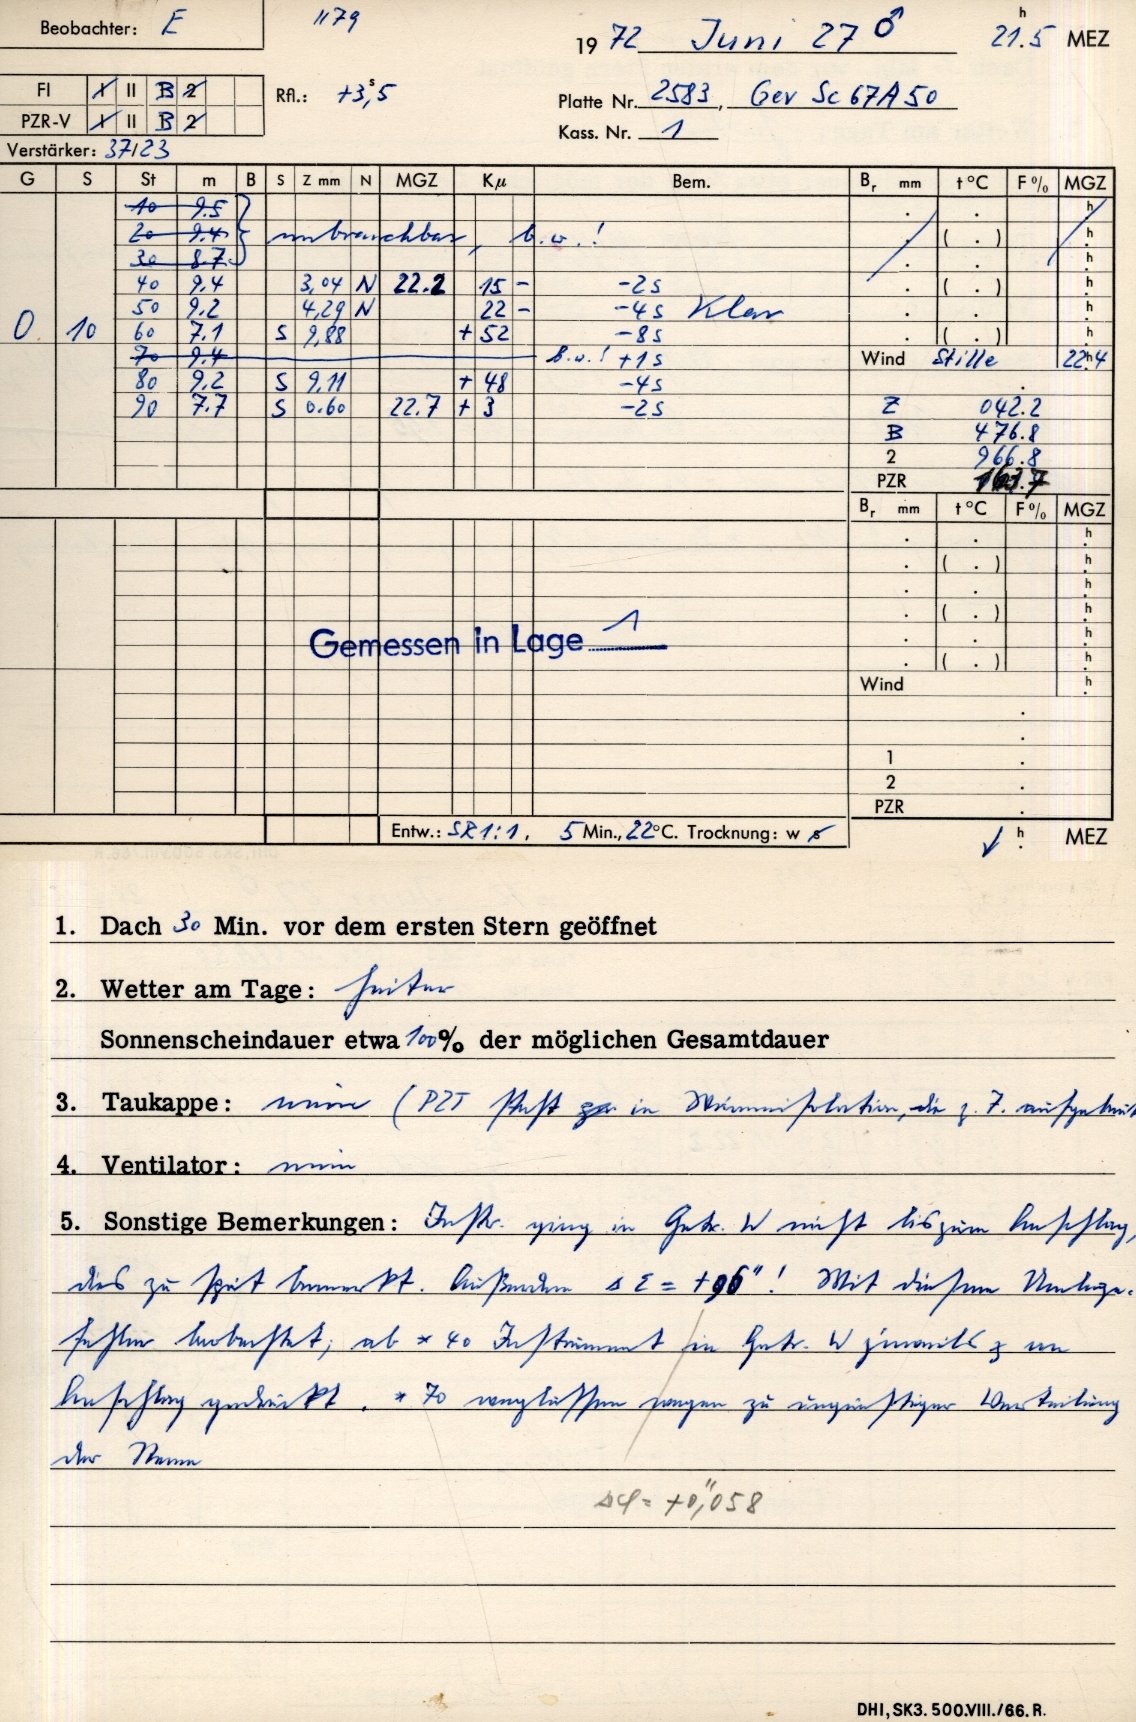 Beobachter: E "79
19 72 Juni 27 ♂ 21.5 h MEZ
FI I II B 2 Rfl.: +3,5 s Platte Nr. 2583, Gev Sc 67A50
PZR-V I II B 2 Kass. Nr. 1
Verstärker: 37/23
G S St m B S Z mm N MGZ Kμ Bem. Br mm t°C F% MGZ
10 9.5 . . h
20 9.4 unbrauchbar, b.w.! . ( . ) h
30 8.7 . . h
40 9.4 3,04 N 22.2 15 - -2s . ( . ) h
50 9.2 4,29 N 22 - -4s Klar . . h
0 10 60 7.1 S 9,88 + 52 -8s . ( . ) h
70 9.4 b.w.! +1s Wind Stille 22h4
80 9.2 S 9.11 + 48 -4s .
90 7.7 S 0.60 22.7 + 3 -2s Z 042.2
B 476.8
2 966.8
PZR
Br mm t°C F% MGZ
. . h
. ( . ) h
. . h
. ( . ) h
. . h
. ( . ) h
Gemessen in Lage 1
Wind h
.
.
1 .
2 .
PZR .
Entw.: SR1:1, 5 Min., 22°C. Trocknung: w s
h MEZ
1. Dach 30 Min. vor dem ersten Stern geöffnet
2. Wetter am Tage: heiter
Sonnenscheindauer etwa 100% der möglichen Gesamtdauer
3. Taukappe: nein (PZT steht in Wärmeisolation, die z. Z. aufgebaut
4. Ventilator: nein
5. Sonstige Bemerkungen: Instr. ging in Getr. W nicht bis zum Anschlag,
dies zu spät bemerkt. Außerdem Δ Σ = +96"! Mit diesem Umlege-
fehler beobachtet; ab * 40 Instrument in Getr. W jeweils an
Anschlag gedrückt. * 70 weglassen wegen zu ungünstiger Verteilung
der Sterne
Δφ = +0",058
DHI, SK3. 500.VIII./66. R.